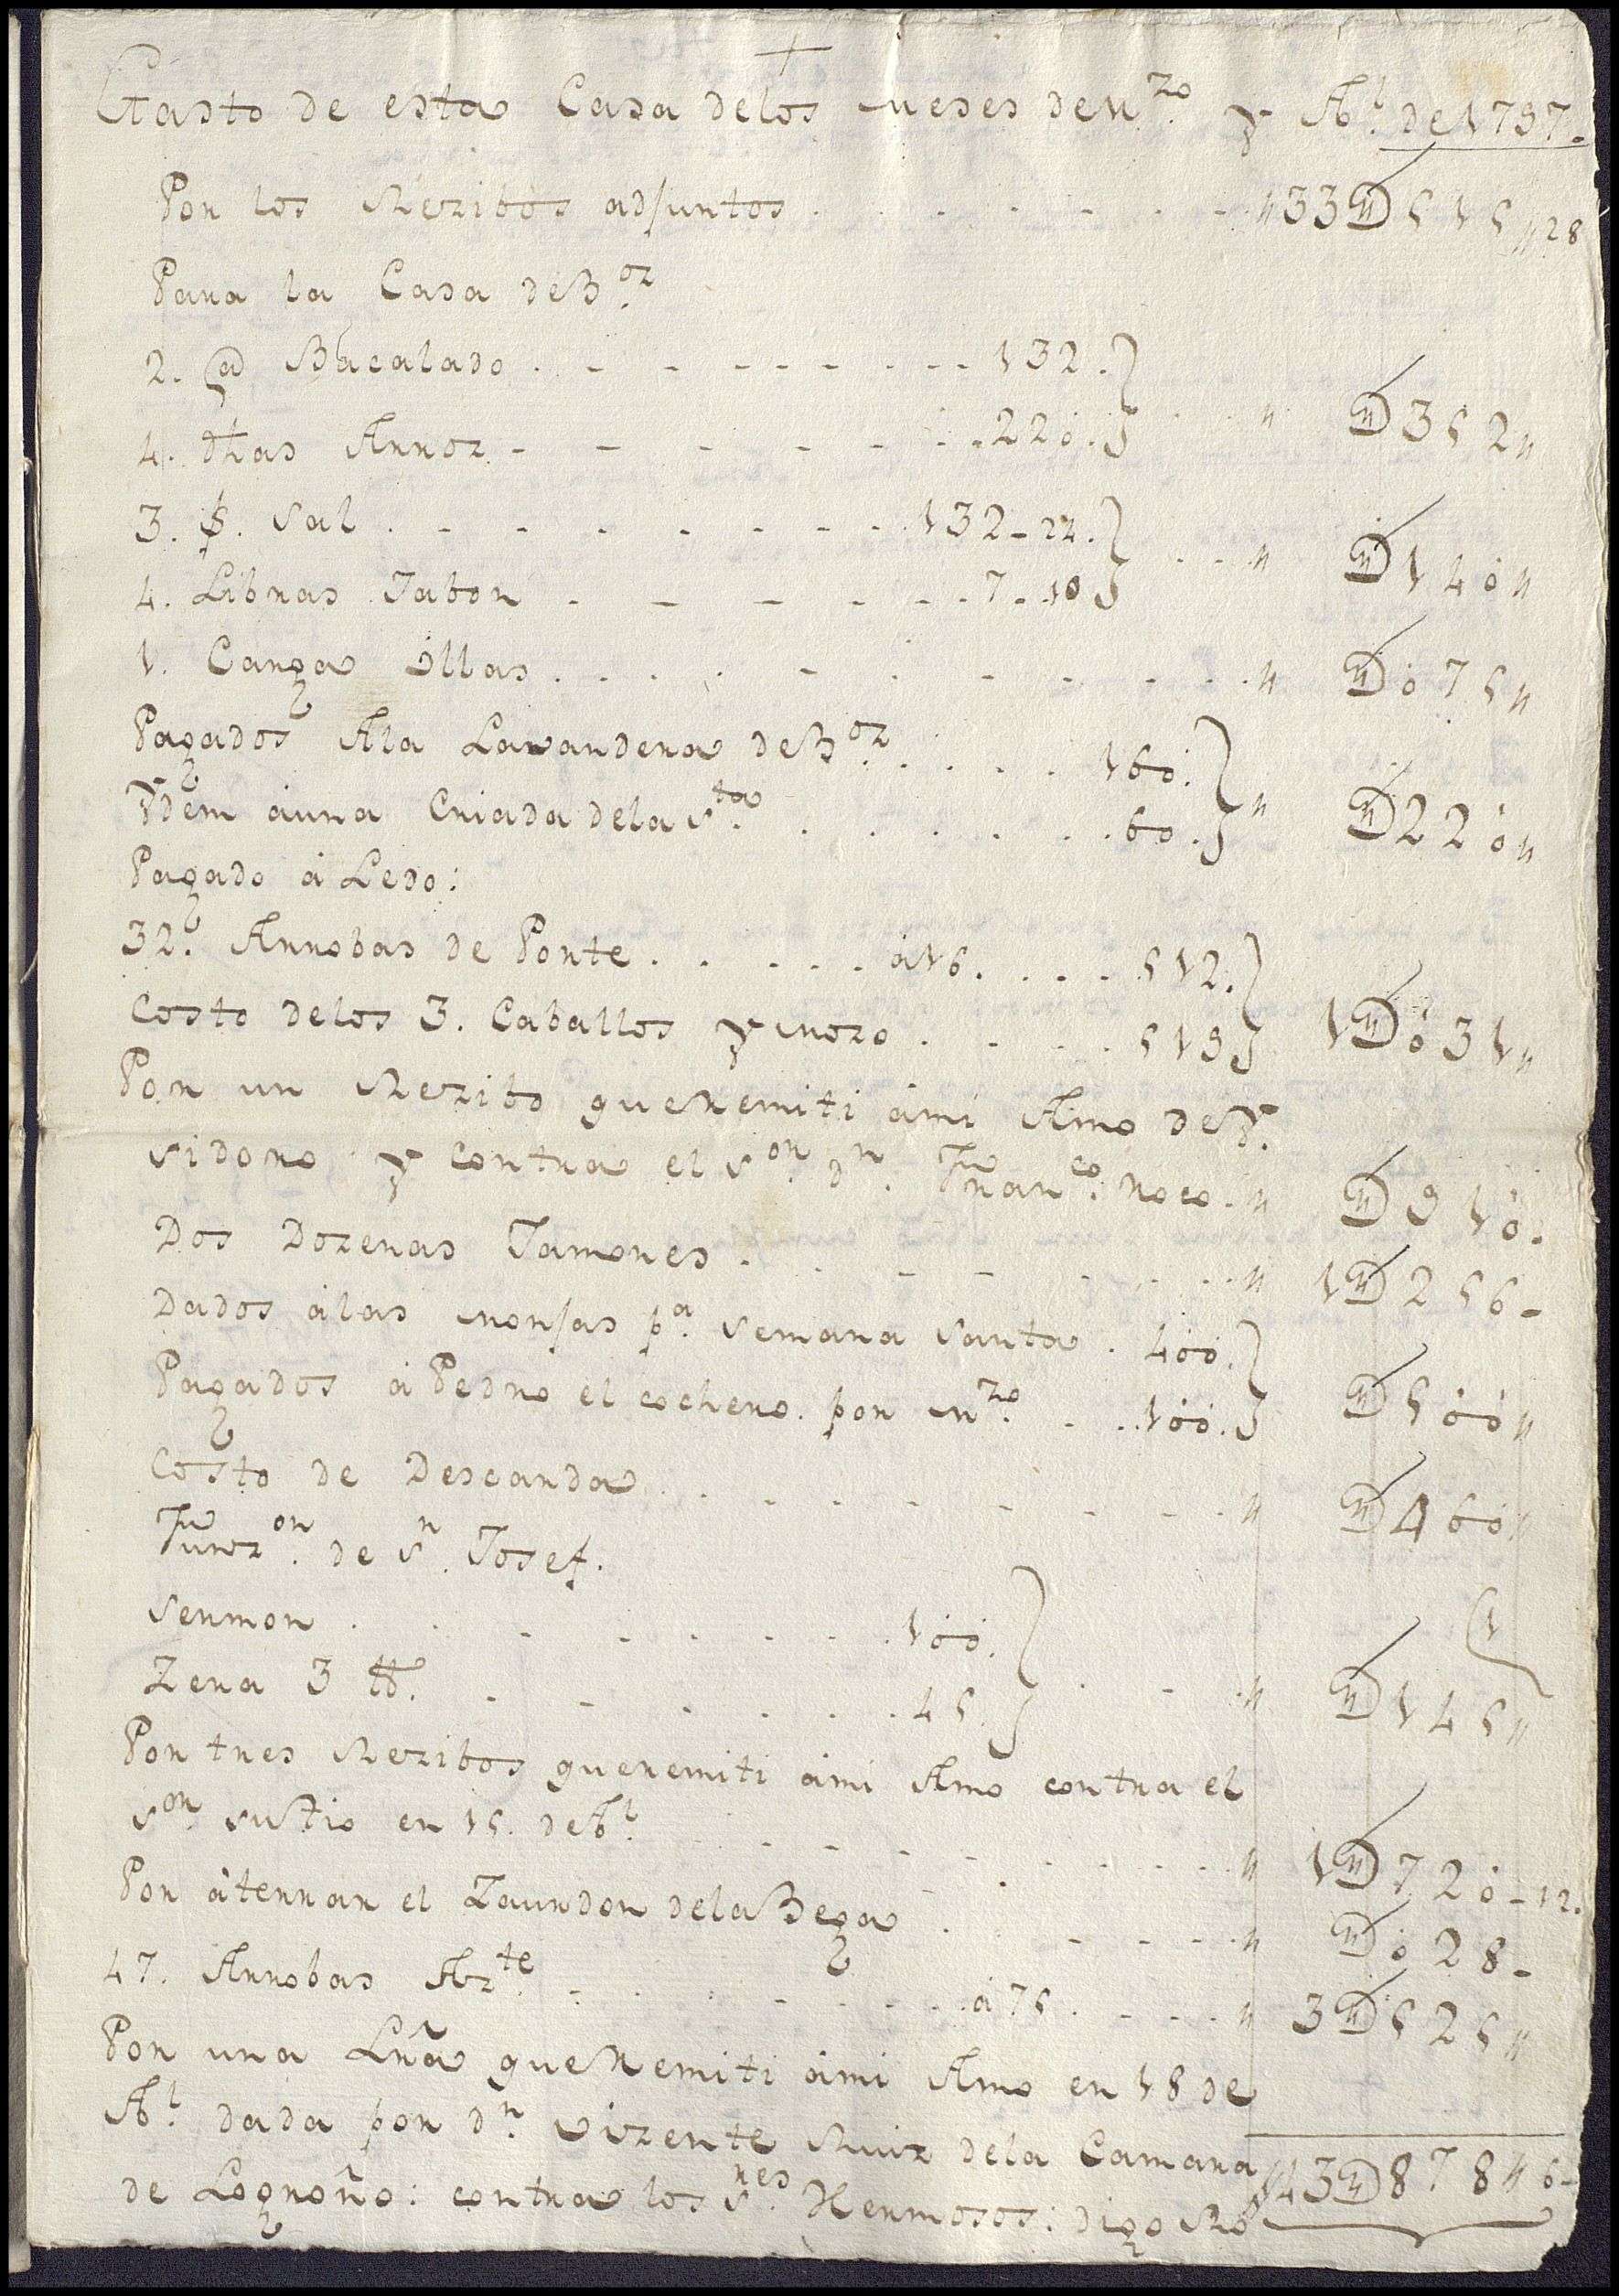 +
Gasto de esta Casa delos Meses de M.zo y Ab.l de 1797.
Por los Rezibos adjuntos . . . . . . . " 33 D 515 " 28
Para la Casa de B.oz
2. @ Bacalado . . . . . . . . . 132.
4. dhas Arroz . . . . . . . 220. . . " D 352 "
3. f. Sal . . . . . . . . 132 - 24.
4. Libras Jabon . . . . . . 7 - 10 . . . " D 140 "
1. Carga òllas . . . . . . . . . . " D 075 "
Pagados Ala Lavandera de B.oz . . . . . 160.
Ydem àuna Criada dela S.ta . . . . . . 60. " D 220 "
Pagado à Ledo:
32. Arrobas de Porte . . . . . à 16. . . . 512.
Costo delos 3. Caballos y Mozo . . . . 519 1 D 031 "
Por un Rezibo que Remiti àmi Amo de Y.
sidoro y contra el S.or D.n Fran.co Roco . " D 910.
Dos Dozenas Jamones . . . . . . . " 1 D 256 -
Dados àlas Monjas p.a Semana Santa . 400.
Pagados à Pedro el cochero por M.zo . . . 100. D 500 "
Costo de Descarda . . . . . . . . . " D 460 "
Funz.on de S.n Josef.
Sermon . . . . . . . . 100.
Zera 3 lb. . . . . . . 45 . . . " D 145 "
Por tres Rezibos que remiti àmi Amo contra el
S.or Sustio en 15. de Ab.l . . . . . . . . " 1 D 720 - 12.
Por àterrar el Zaurdon dela Bega . . . . . " D 028 -
47. Arrobas Az.te . . . . . . . à 75 . . . . " 3 D 525 "
Por una Lrã que Remiti àmi Amo en 18 de
Ab.l dada por D.n Vizente Ruiz dela Camara
de Logroño: contra los S.res Hermosos: digo R.s " 43 D 878 " 6 -